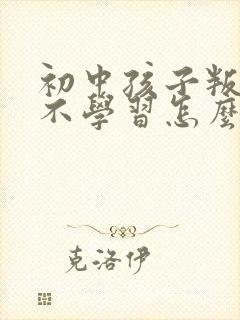 初中孩子叛
不學習怎麼
克洛伊